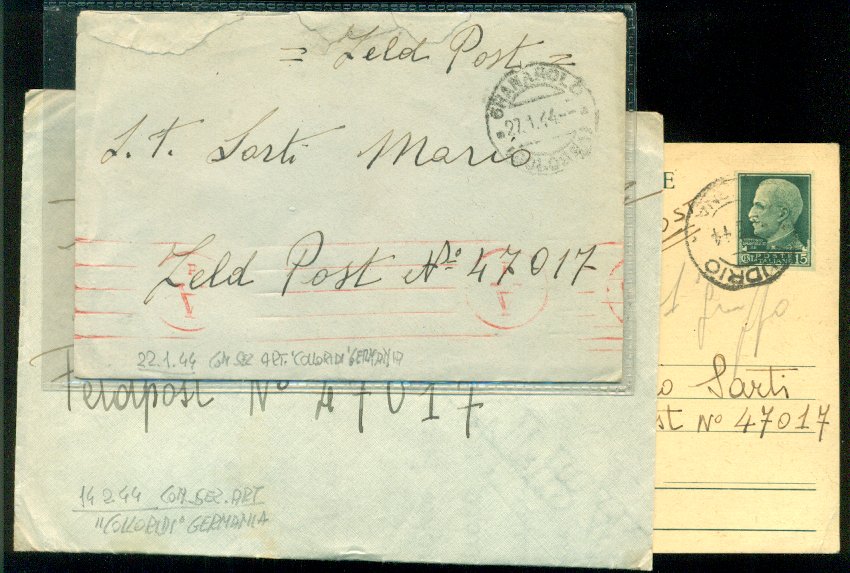 = Zeld Post =
GRANAROLO
27.1.44
S.T. Sarti Mario
Zeld Post No 47017
22.1.44 COM SEZ ART. "COLLORIDI" GERMANIA
Feldpost No 47017
14 2.44 COM. SEZ. ART.
"COLLORIDI" GERMANIA
E
POSTE
ITALIANE
15
44
IDRIO
Sarti
st No 47017